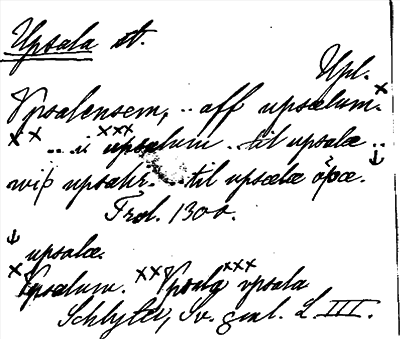 Upsala st.
Upl.
Vpsalensem, .. aff upsælum. ×
× × .. i upsælum ××× . til upsalæ ..
wiþ upsalir. .. til upsælæ öþæ. ↓
Frdl. 1300.
↓ upsalæ.
× Vpsalum. ×× Vpsala ××× vpsala
Schlyter, Sv. gml. L. III.